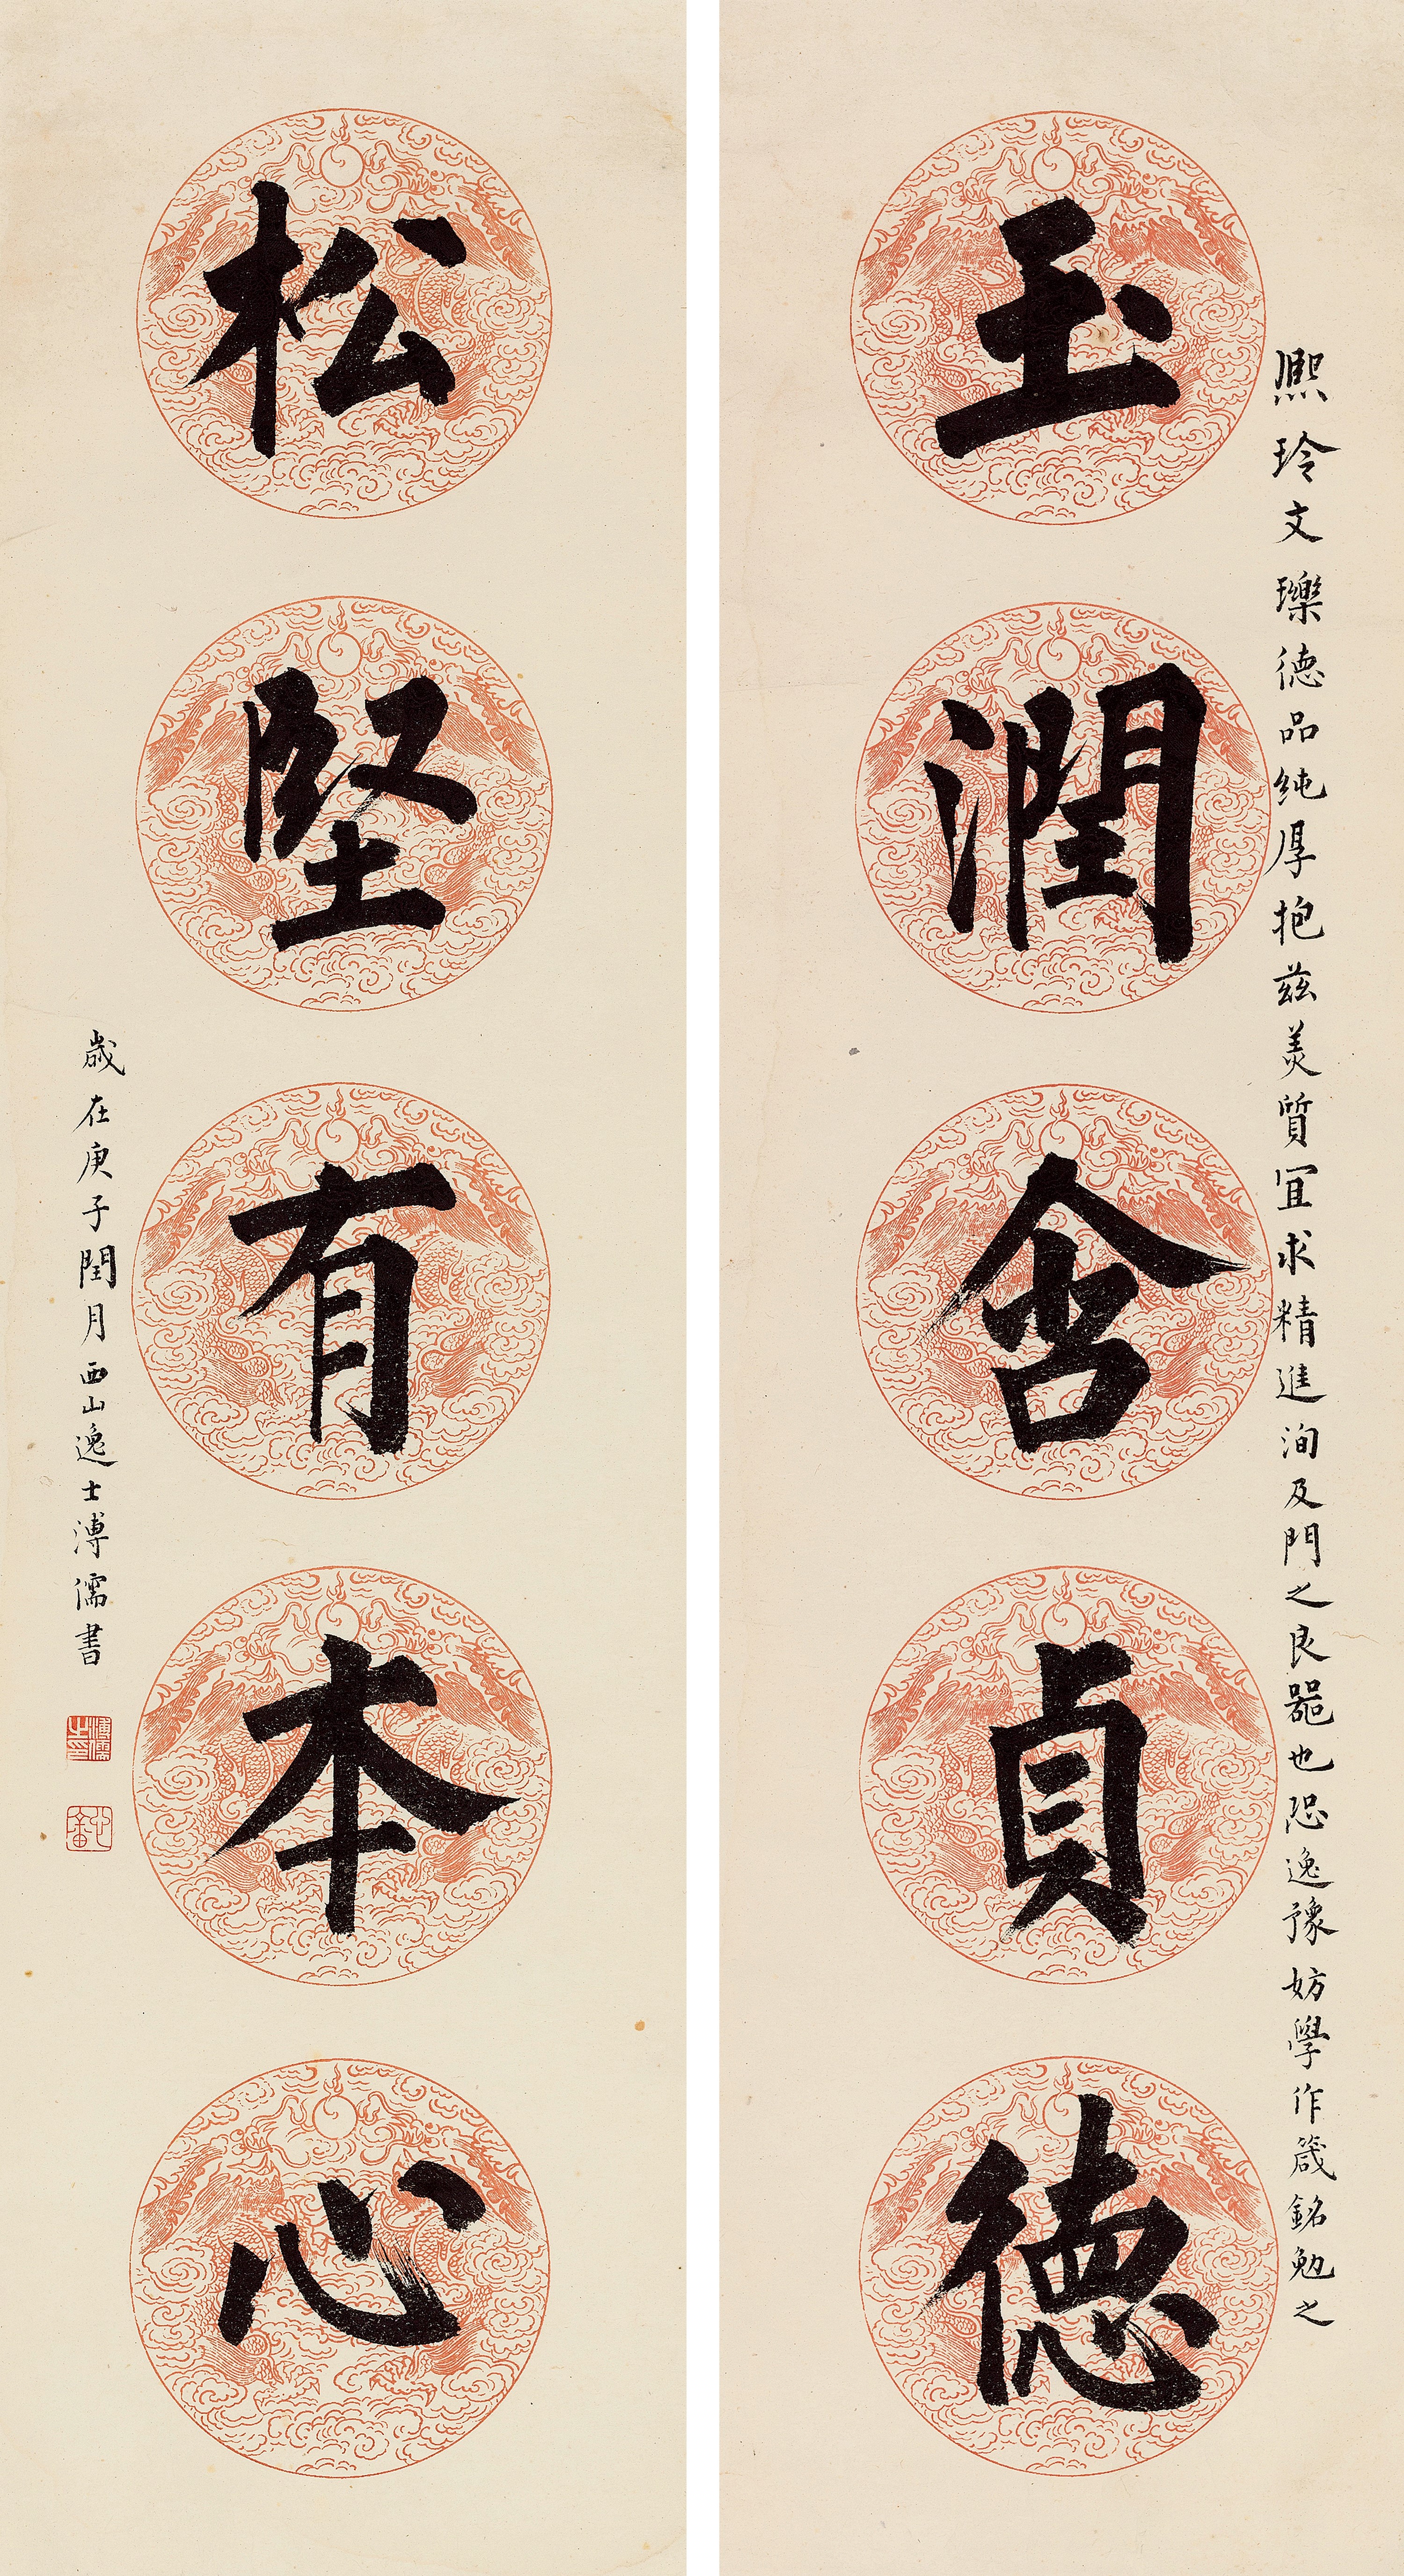 熙玲文瓅德品純厚抱茲美質宜求精進洵及門之良器也恐逸豫妨學作箴銘勉之
玉潤含貞德
松堅有本心
歲在庚子閏月西山逸士溥儒書
溥儒之印
心畬